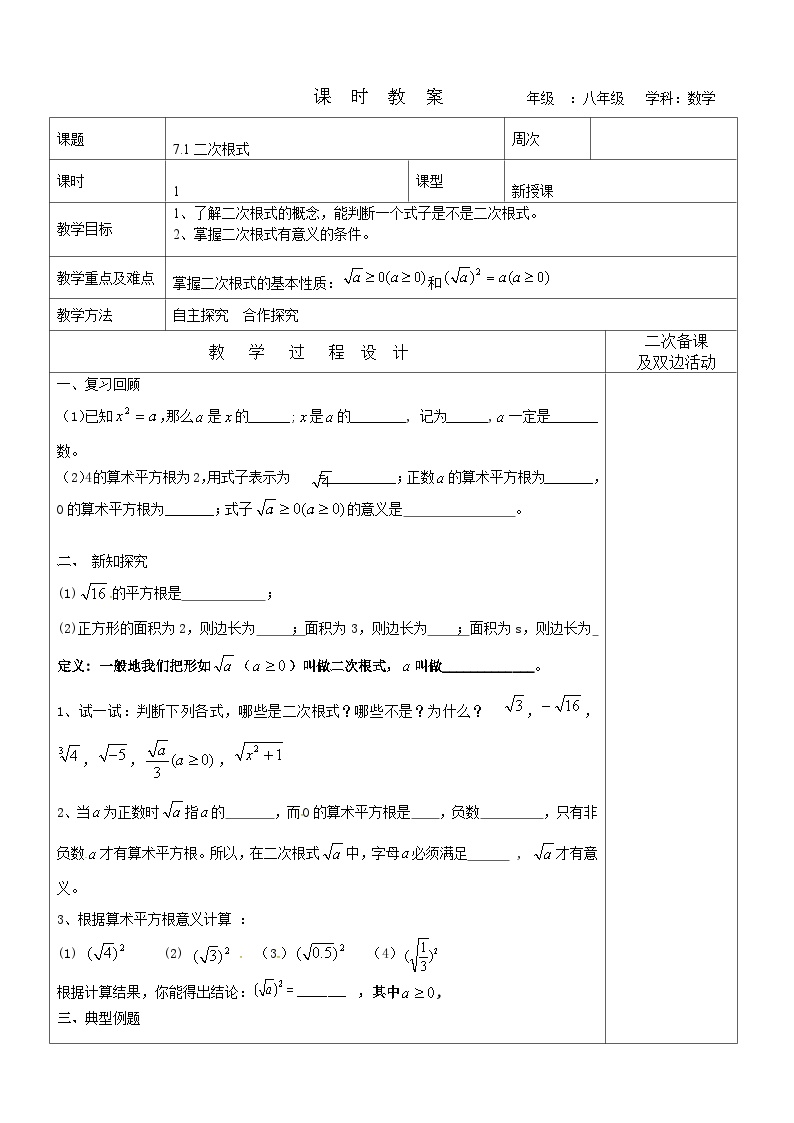 课 时 教 案 年级 ：八年级 学科：数学
课题 7.1二次根式 周次
课时 1 课型 新授课
教学目标 1、了解二次根式的概念，能判断一个式子是不是二次根式。
2、掌握二次根式有意义的条件。
教学重点及难点 掌握二次根式的基本性质：√a≥0(a≥0)和(√a)²=a(a≥0)
教学方法 自主探究 合作探究
教 学 过 程 设 计 二次备课
及双边活动
一、复习回顾
（1)已知x²=a,那么a是x的______；x是a的________, 记为______，a一定是_______
数。
（2)4的算术平方根为2,用式子表示为 √4__________；正数a的算术平方根为_______，
0的算术平方根为_______；式子√a≥0(a≥0)的意义是________________。
二、 新知探究
(1) √16的平方根是____________；
(2)正方形的面积为2，则边长为_____；面积为3，则边长为____；面积为s，则边长为_
定义：一般地我们把形如√a（a≥0）叫做二次根式，a叫做_____________。
1、试一试：判断下列各式，哪些是二次根式？哪些不是？为什么？ √3，-√16，
∛4，√-5，√a/3(a≥0)，√(x²+1)
2、当a为正数时√a指a的_______，而0的算术平方根是____，负数_________，只有非
负数a才有算术平方根。所以，在二次根式√a中，字母a必须满足______ ， √a才有意
义。
3、根据算术平方根意义计算 ：
(1) (√4)² (2) (√3)² (3)(√0.5)² (4)(√(1/3))²
根据计算结果，你能得出结论：(√a)²=_______ ，其中a≥0,
三、典型例题